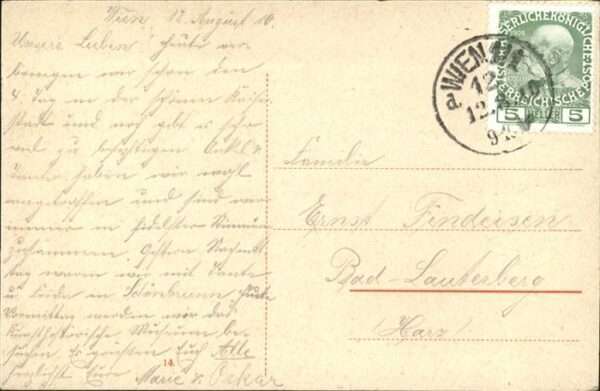 Wien, 12. August 10.
Unsere Lieben! Heute ver-
bringen wir schon den
4. Tag in der schönen Kaiser-
stadt und noch gibt es so
viel zu besichtigen. Onkel &
Tante haben wir wohl
angetroffen und sind wir
immer in fidelster Stimmung
zusammen. Gestern Nachmit-
tag waren wir mit Tante
u. in Schönbrunn, heute
Vormittag werden wir das
Kunsthistorische Museum be-
suchen. Es grüssen Euch Alle
herzlichst Eure
Marie & Oskar
14.
KAISERLICHE KÖNIGLICHE
ÖSTERREICHISCHE POST
5 HELLER 5
WIEN
12
Familie
Ernst Findeisen
Bad-Lauterberg
Harz